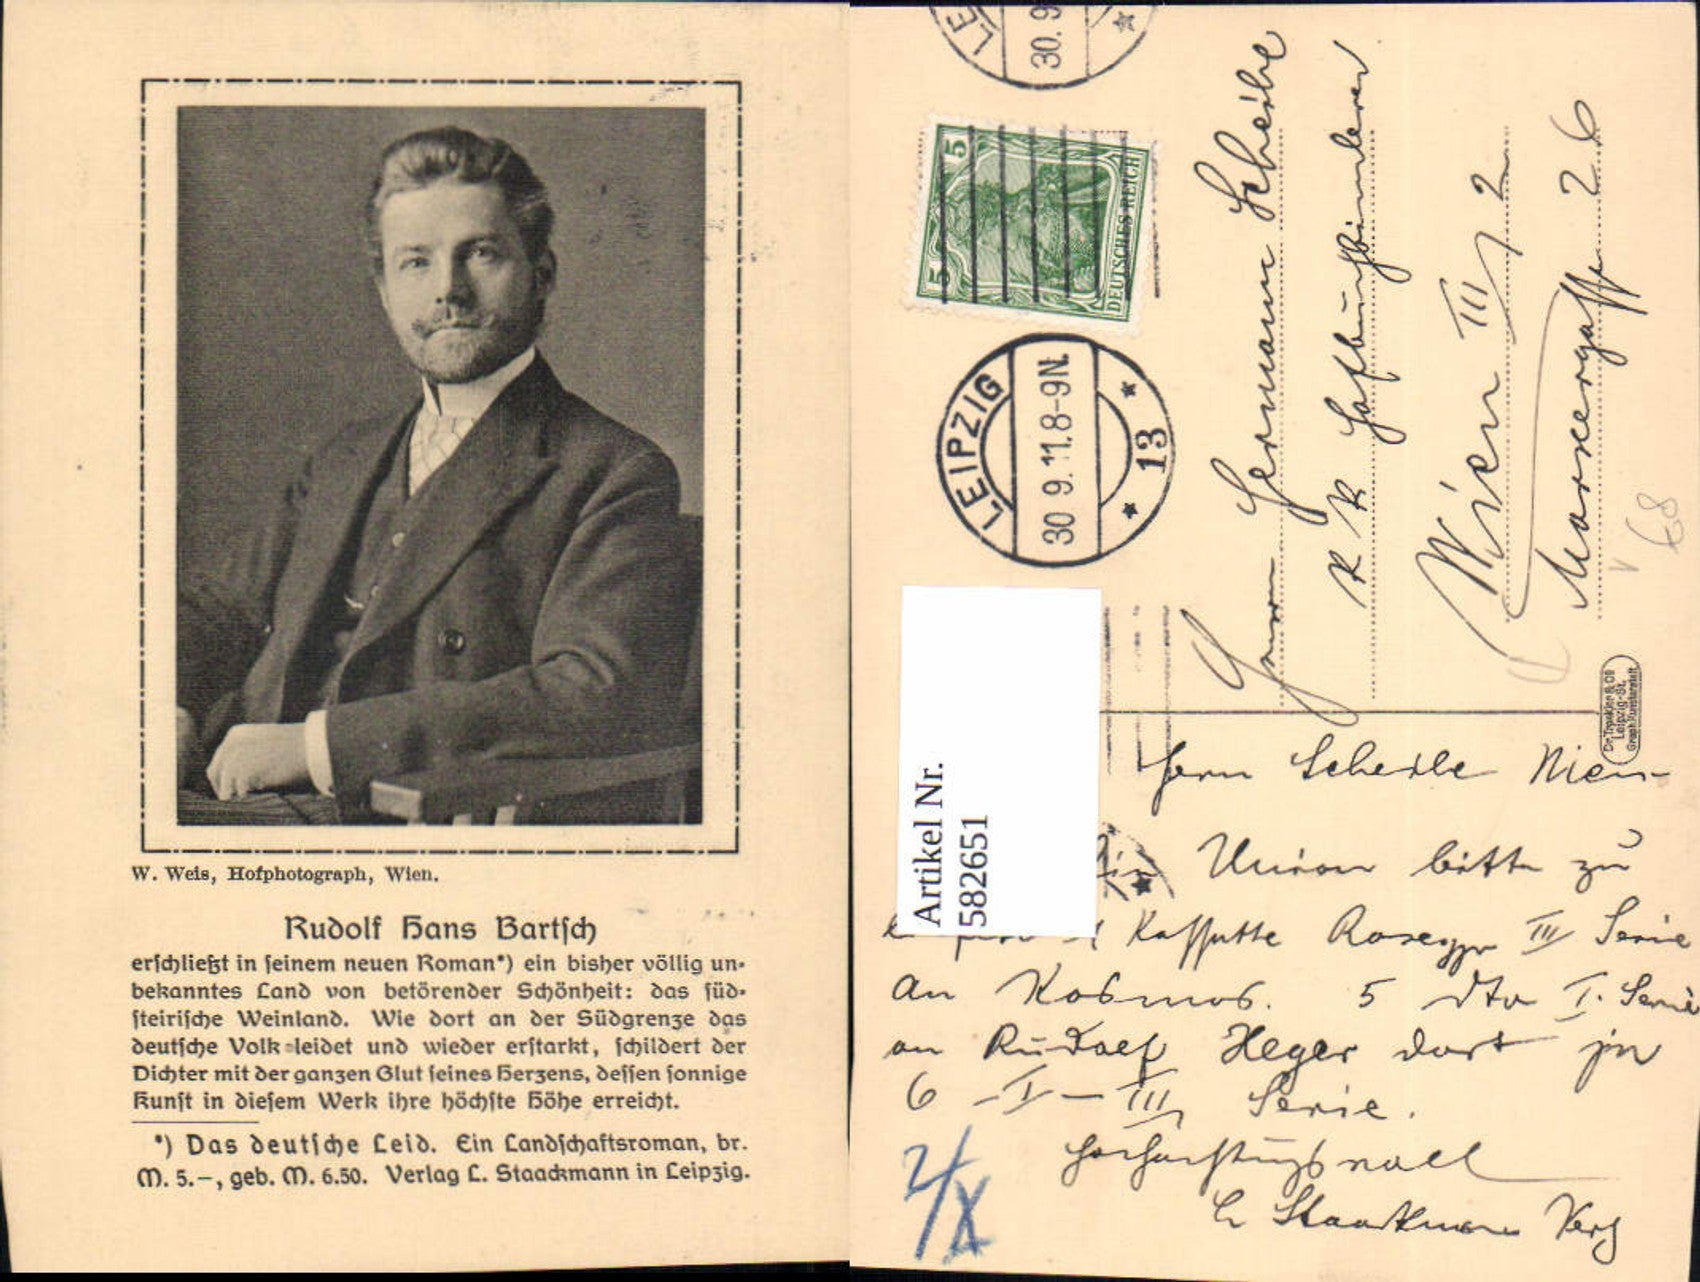 W. Weis, Hofphotograph, Wien.
Rudolf Hans Bartsch
erschließt in seinem neuen Roman*) ein bisher völlig un-
bekanntes Land von betörender Schönheit: das süd-
steirische Weinland. Wie dort an der Südgrenze das
deutsche Volk leidet und wieder erstarkt, schildert der
Dichter mit der ganzen Glut seines Herzens, dessen sonnige
Kunst in diesem Werk ihre höchste Höhe erreicht.
*) Das deutsche Leid. Ein Landschaftsroman, br.
M. 5.–, geb. M. 6.50. Verlag L. Staackmann in Leipzig.
30. 9
5 5
DEUTSCHES REICH
LEIPZIG
30 9. 11. 8-9 N.
* 13 *
Herrn Hermann Scheibe
K K Hofbuchbinderei
Wien III/2
Marxergasse 26
68
Dr. Trenkler & Co
Leipzig-St.
Graph. Kunstanstalt
Artikel Nr.
5826651
Herrn Scheibe Wien
Union bitte zu
Rosegger III Serie
an Kosmos. 5 dto I. Serie
an Rudolf Heger dort je
6 - I - III Serie.
Hochachtungsvoll
L Staackmann Verlg
2/X